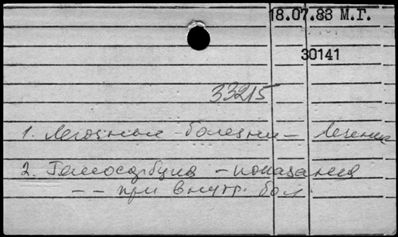 18.07.83 М.Г.
30141
33215
1. Легочные болезни – лечение
2. Гемосорбция – показания
– – при внутр. бол.